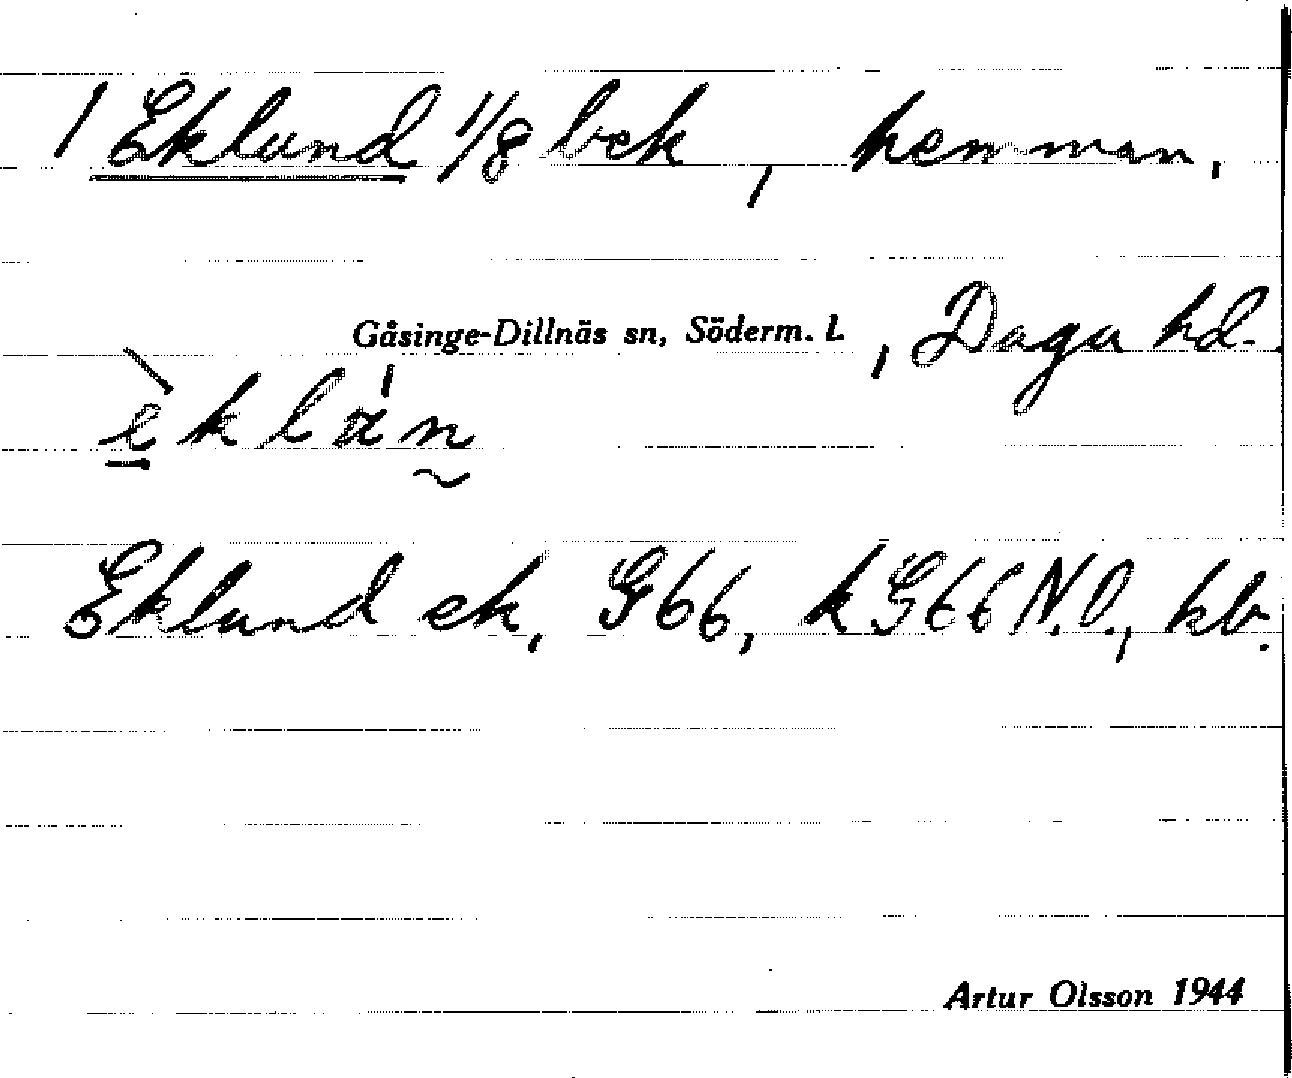 / Eklund 1/8 bek, hemman,
Gåsinge-Dillnäs sn, Söderm. L, Daga hd.
èklán
Eklund ek, G66, k G66 N.O., kb.
Artur Olsson 1944